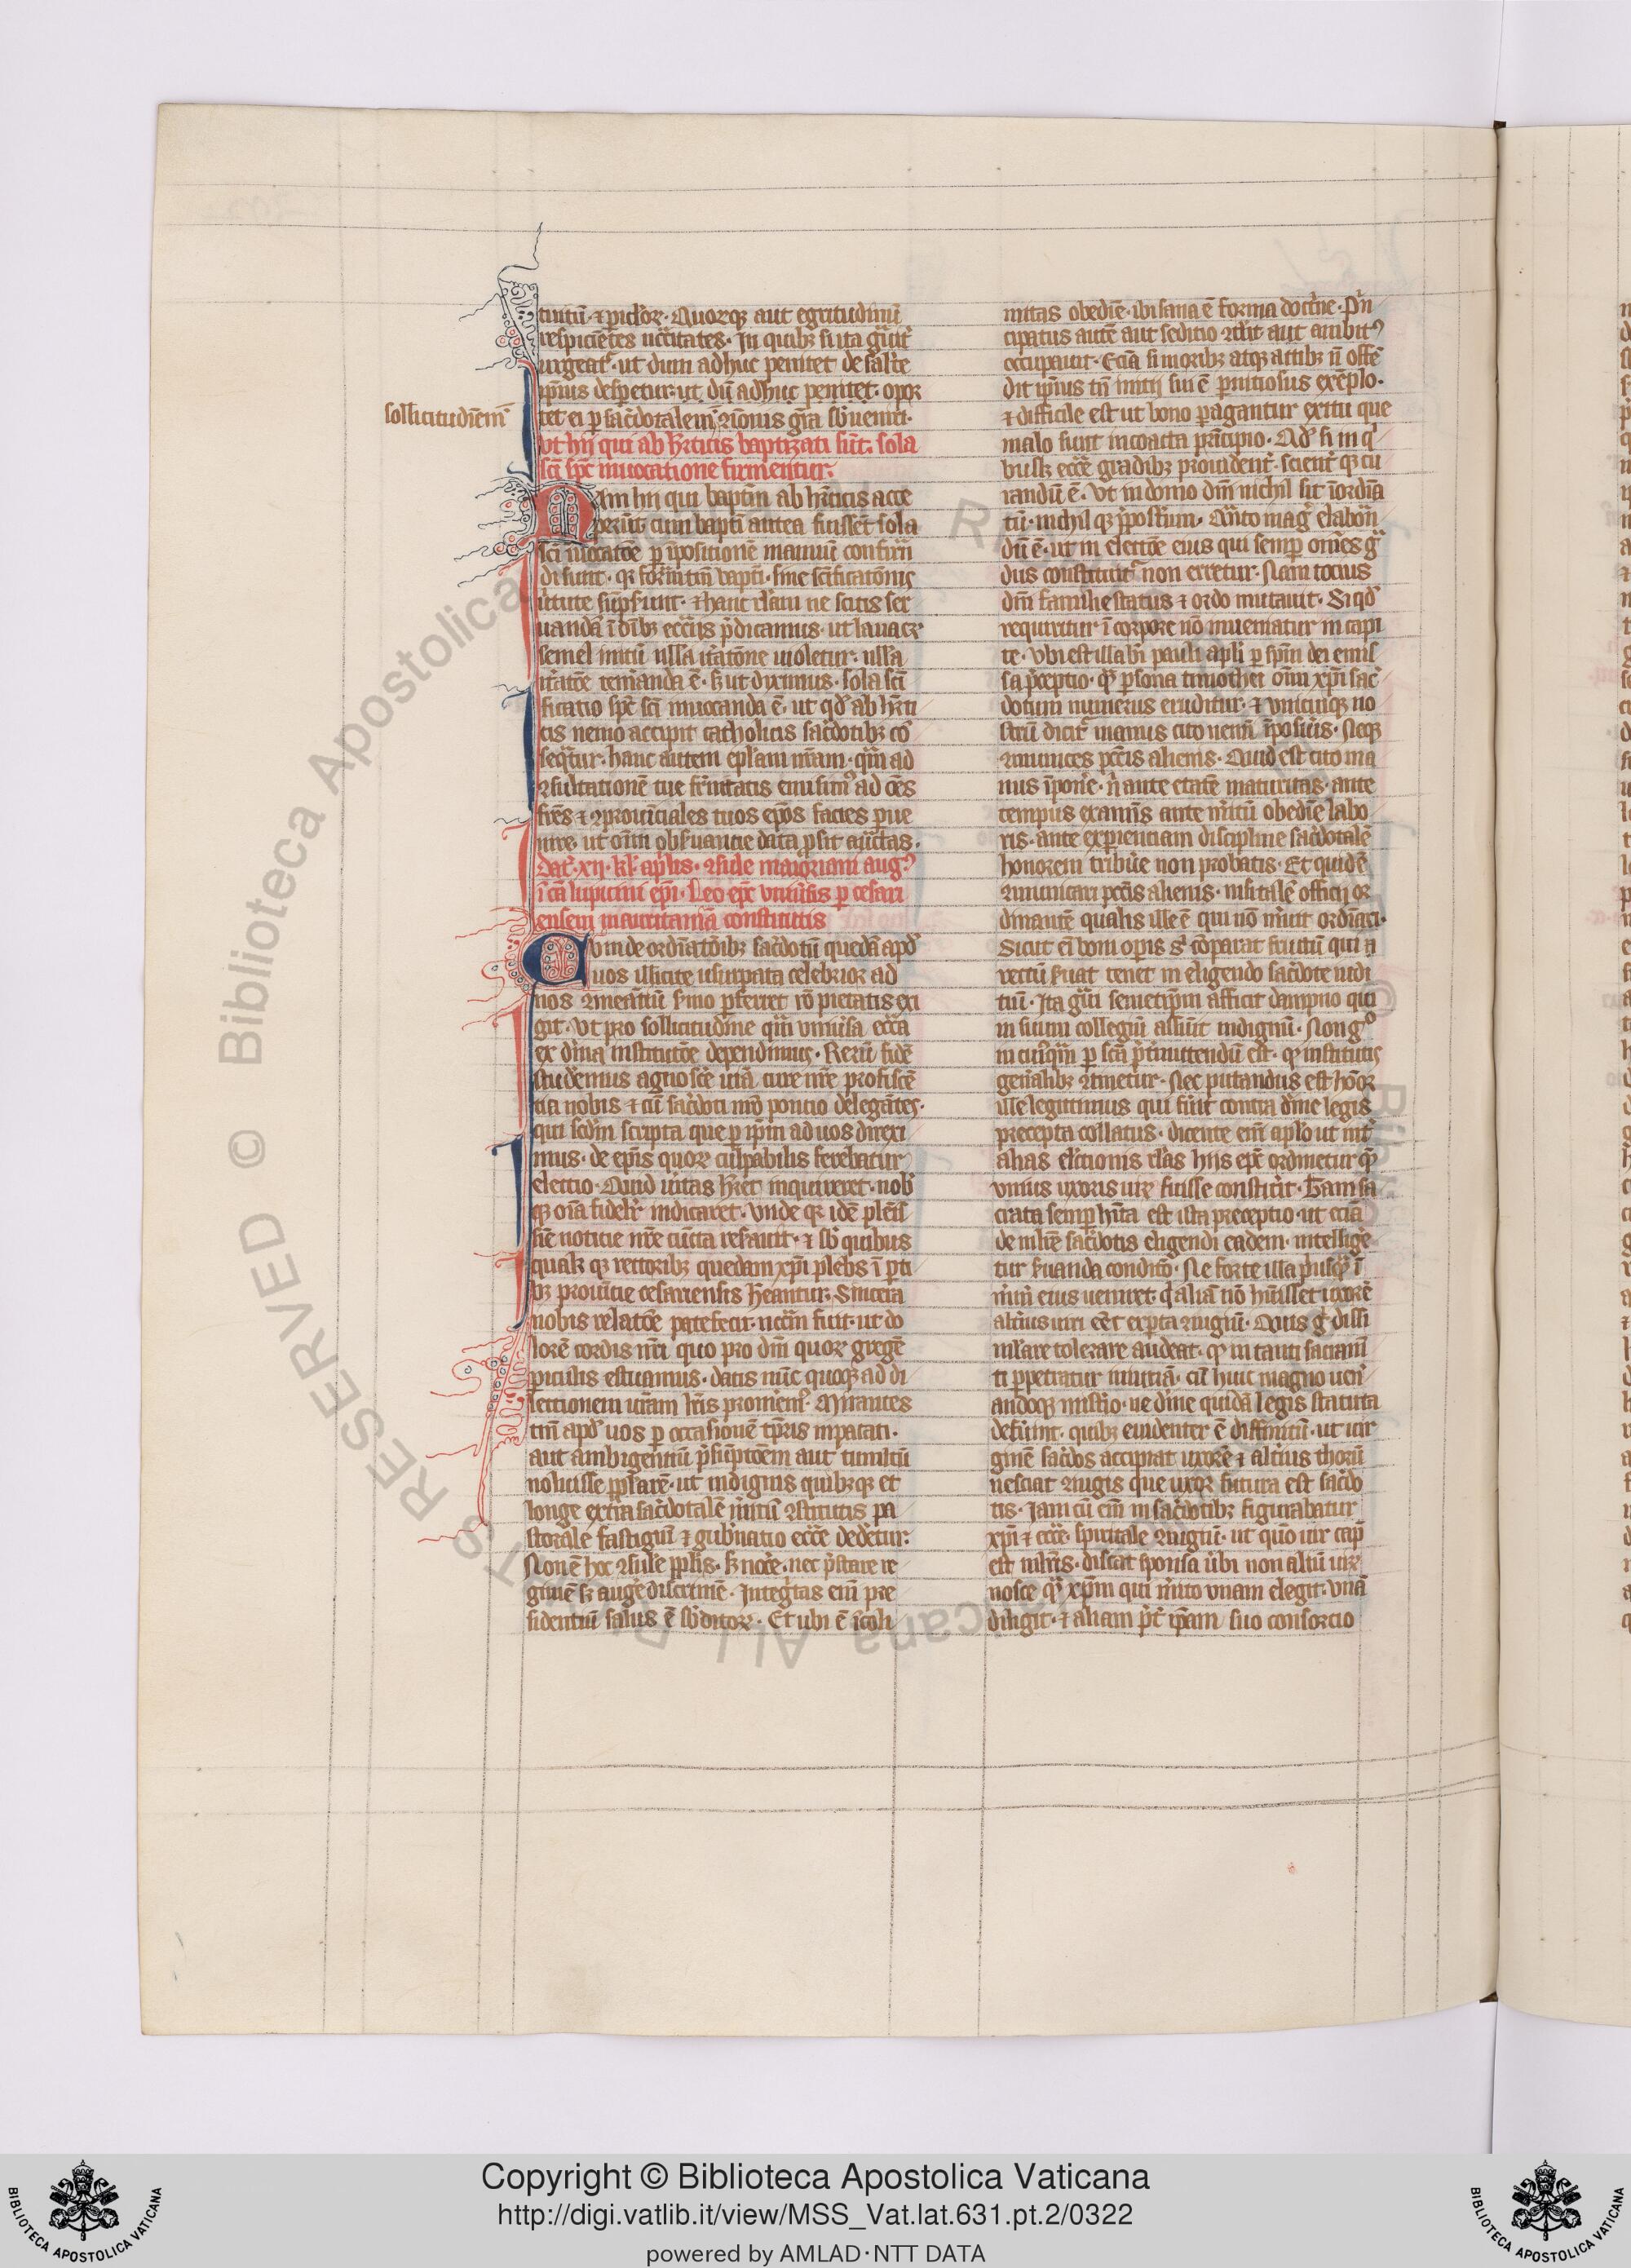 sollicitudinem
tiuitũ · ⁊ piclor̃ · Quorꝫ aut egritudinũ
respiciẽtes nẽcitates · In quibꝫ si ita gͣuit̾
urgeat̾ · ut dum adhuc penitet de salute
ipius despetur · ut dũ adhuc penitet · opor
tet ei p sac̾dotalem rõnis gr̃a sb̾ueniri ·
Vt hij qui ab hr̃ticis baptizati sũt · sola
scĩ sp̃c inuocatione firmentur ·
Nam hij qui baptm̃ ab hr̃ticis acce
perũt · cum bapti antea fuisſet sola
scĩ inuocatõe p ipositionẽ manuũ confirm̃
di sunt · qꝛ formã tm̃ bapti · sine scĩficatõnis
ỉtute sũpsunt · ⁊ hanc rl̃am ne scitis ser
uandã i oĩbꝫ ecc̃ijs p̃dicamus · ut lauacꝝ
semel initũ nĺla ỉtatõne uioletur · nĺla
ỉtatõe temanda ẽ · sꝫ ut diximus · sola scĩ
ficatio sp̃c scĩ inuocanda ẽ · ut qd̾ ab hr̃ti
cis nemo accipit catholicis sac̾dotibꝫ cõ
seqͣtur · hanc autem ep̃lam nr̃am · qm̃ ad
ꝯsultationẽ tue fr̃nitatis emisimꝰ ad oẽs
fr̃es ⁊ ꝯprouĩciales tuos ep̃os facies p̾ue
nire · ut om̃i obs̾uancie data p̾sit auc̃tas ·
Dat̾ · xij · kl̾ · ap̾lis · ꝯsule maioriani augꝰ
i cã lupicini ep̃i · Leo ep̃c vniũsis p cesari
ensem mauritaniã constitutis
Cum de ordĩatõibꝫ sac̾dotũ quedã apd̾
uos illicite usurpata celebrior ad
nos ꝯmeãtiũ s̾mo p̾ferret rõ pietatis exi
git · Vt pro sollicitudĩe qm̃ vniũsa ecc̃a
ex dĩna institutõe dependimus · Rerũ fidẽ
studemus agnosc̃e uicẽ cure nr̃e profisce
tia nobis ⁊ cũ sac̾doti nr̃o potentio delegãtes ·
qui scd̾m scripta que p ip̃m ad uos direxi
mus · de ep̃is quor̃ culpabilis ferebatur
electio · Quid ueritas hr̃et inquireret · nob̾
qꝫ oĩa fidelr̾ indicaret · Vnde qꝛ idẽ plenis
sĩe noticie nr̃e cũcta reserauit · ⁊ sb̾ quibus
qualibꝫ qꝫ rectoribꝫ quedam xp̃i plebs i pti
bꝫ prouĩcie cesariensis hr̃eantur · Sincera
nobis relatõe patefecit · nec̃m fuit · ut do
lorẽ cordis nr̃i quo pro dm̃i quor̃ gregẽ
p̾iculis estuamus · datis nũc quoqꝫ ad di
lectionem ur̃am lr̃is promem̾ · Mirantes
tm̃ apd̾ uos p occasionẽ tp̃ris inpacati ·
aut ambigentiũ p̾sũptõem aut tumultũ
nobisſe p̾ualere · ut indignis quibꝫqꝫ et
longe extra sac̾dotalẽ m̾itũ ꝯstitutis pa
storale fastigiũ ⁊ gub̾natio ecc̃e dedetur ·
Non ẽ hoc ꝯsulẽ pp̃lis · sꝫ noce̾ · nec p̾stare re
gimẽ sꝫ aug̾e discrimẽ · Integ̾tas em̃ pre
sidentiũ salus ẽ sb̾ditor̃ · Et ubi ẽ icoli
mitas obediẽ · ibi sana ẽ forma doctrine · Prin
cipatus autẽ aut seditio ꝯt̾it aut ambitꝰ
occupauit · Eciã si moribꝫ atqꝫ actibꝫ ñ offẽ
dit ip̃ius tñ initij sui ẽ p̾nitiosus exẽplo ·
⁊ difficile est ut bono pagantur exitu que
malo sunt incoata principio · Qd̾ si in q
buslibꝫ ecc̃e gradibꝫ prouident̾ · scient̾ qꝫ cu
randũ ẽ · Vt in domo dm̃i nichil sit iordĩa
tũ · nichil qꝫ p̾post̾um · Quãto mag̾ elaborã
dũ ẽ · ut in electõe eius qui semp̾ om̃es gͣ
dus constituit̾ non erretur · Nam tocius
dm̃i familie status ⁊ ordo nutauit · Si qd̾
requiritur i corpore nõ inueniatur in capi
te · Vbi est illa bĩ pauli ap̃li p sp̃m dei emis
sa p̃ceptio · qͣ p̾sona timothei om̃i xp̃i sac̾
dotum numerus eruditur · ⁊ unicuiqꝫ no
strũ dicit̾ manus cito nemĩ iposũis · Neqꝫ
ꝯmunices pctĩs alienis · Quid est cito ma
nus ipon̾e · ñ ante etatẽ maturitas · ante
tempus examĩs ante m̾itũ obediẽ labo
ris · ante experienciam discipline sac̾dotalẽ
honorem tribũe non probatis · Et quid ẽ
ꝯmunicari pctĩs alienis · nisi talẽ offici or
dinantẽ qualis ille ẽ qui nõ m̾uit ordĩari ·
Sicut em̃ boni op̾is s̾ cõparat fructũ qui ñ
rectũ s̾uat tenet in eligendo sac̾dote iudi
tiũ · Ita gͣui semetip̃m afficit dampno qui
in suum collegiũ assũit indignũ · Non gͦ
in cuiꝫqͣm p scã p̃t̾mittendũ est · qͣ institutis
gen̾alibꝫ ꝯtinetur · Nec putandus est hõor
ille legittimus qui fũit contra dĩne legis
precepta collatus · dicente em̃ ap̃lo ut int̾
alias elc̃tionis rl̃as hijs ep̃c ordinetur qͣ
vnius uxoris uir̃ fuisse constit̾it · Tam sa
crata semp hĩta est ista preceptio · ut eciã
de mliẽ sac̾dotis eligendi eadem · intellige
tur s̾uanda condico̾ · Ne forte illa p̾usqͣ i
m̾iũ eius ueniret · qͥ aliã nõ hũisset uxorẽ
alt̾ius uiri eẽt experta ꝯiugiũ · Quis gͦ dissi
mlare tolerare audeat · qͣ in tanti sacram̃
ti p̾petratur iniuriã · cũ huic magno uen̾
andoqꝫ mist̾io · ne dĩne quidẽ legis statuta
defuerint · quibꝫ euidenter ẽ diffinitũ · ut uir
ginẽ sac̾dos accipiat uxorẽ ⁊ alt̾ius thorũ
nesciat ꝯiugis que uxor futura est sac̾do
tis · Iam cũ em̃ in sac̾dotibꝫ figurabatur
xp̃i ⁊ ecc̃e sp̃uitale ꝯiugiũ · ut quõ uir cap̃
est mlr̃is · discat sponsa ũbi non aliũ uir̃
nosce qͣ xp̃m qui m̾ito vnam elegit · vnã
diligit · ⁊ aliam p̾t̾ ip̃am suo consorcio
Copyright © Biblioteca Apostolica Vaticana
http://digi.vatlib.it/view/MSS_Vat.lat.631.pt.2/0322
powered by AMLAD·NTT DATA
BIBLIOTECA APOSTOLICA VATICANA
BIBLIOTECA APOSTOLICA VATICANA